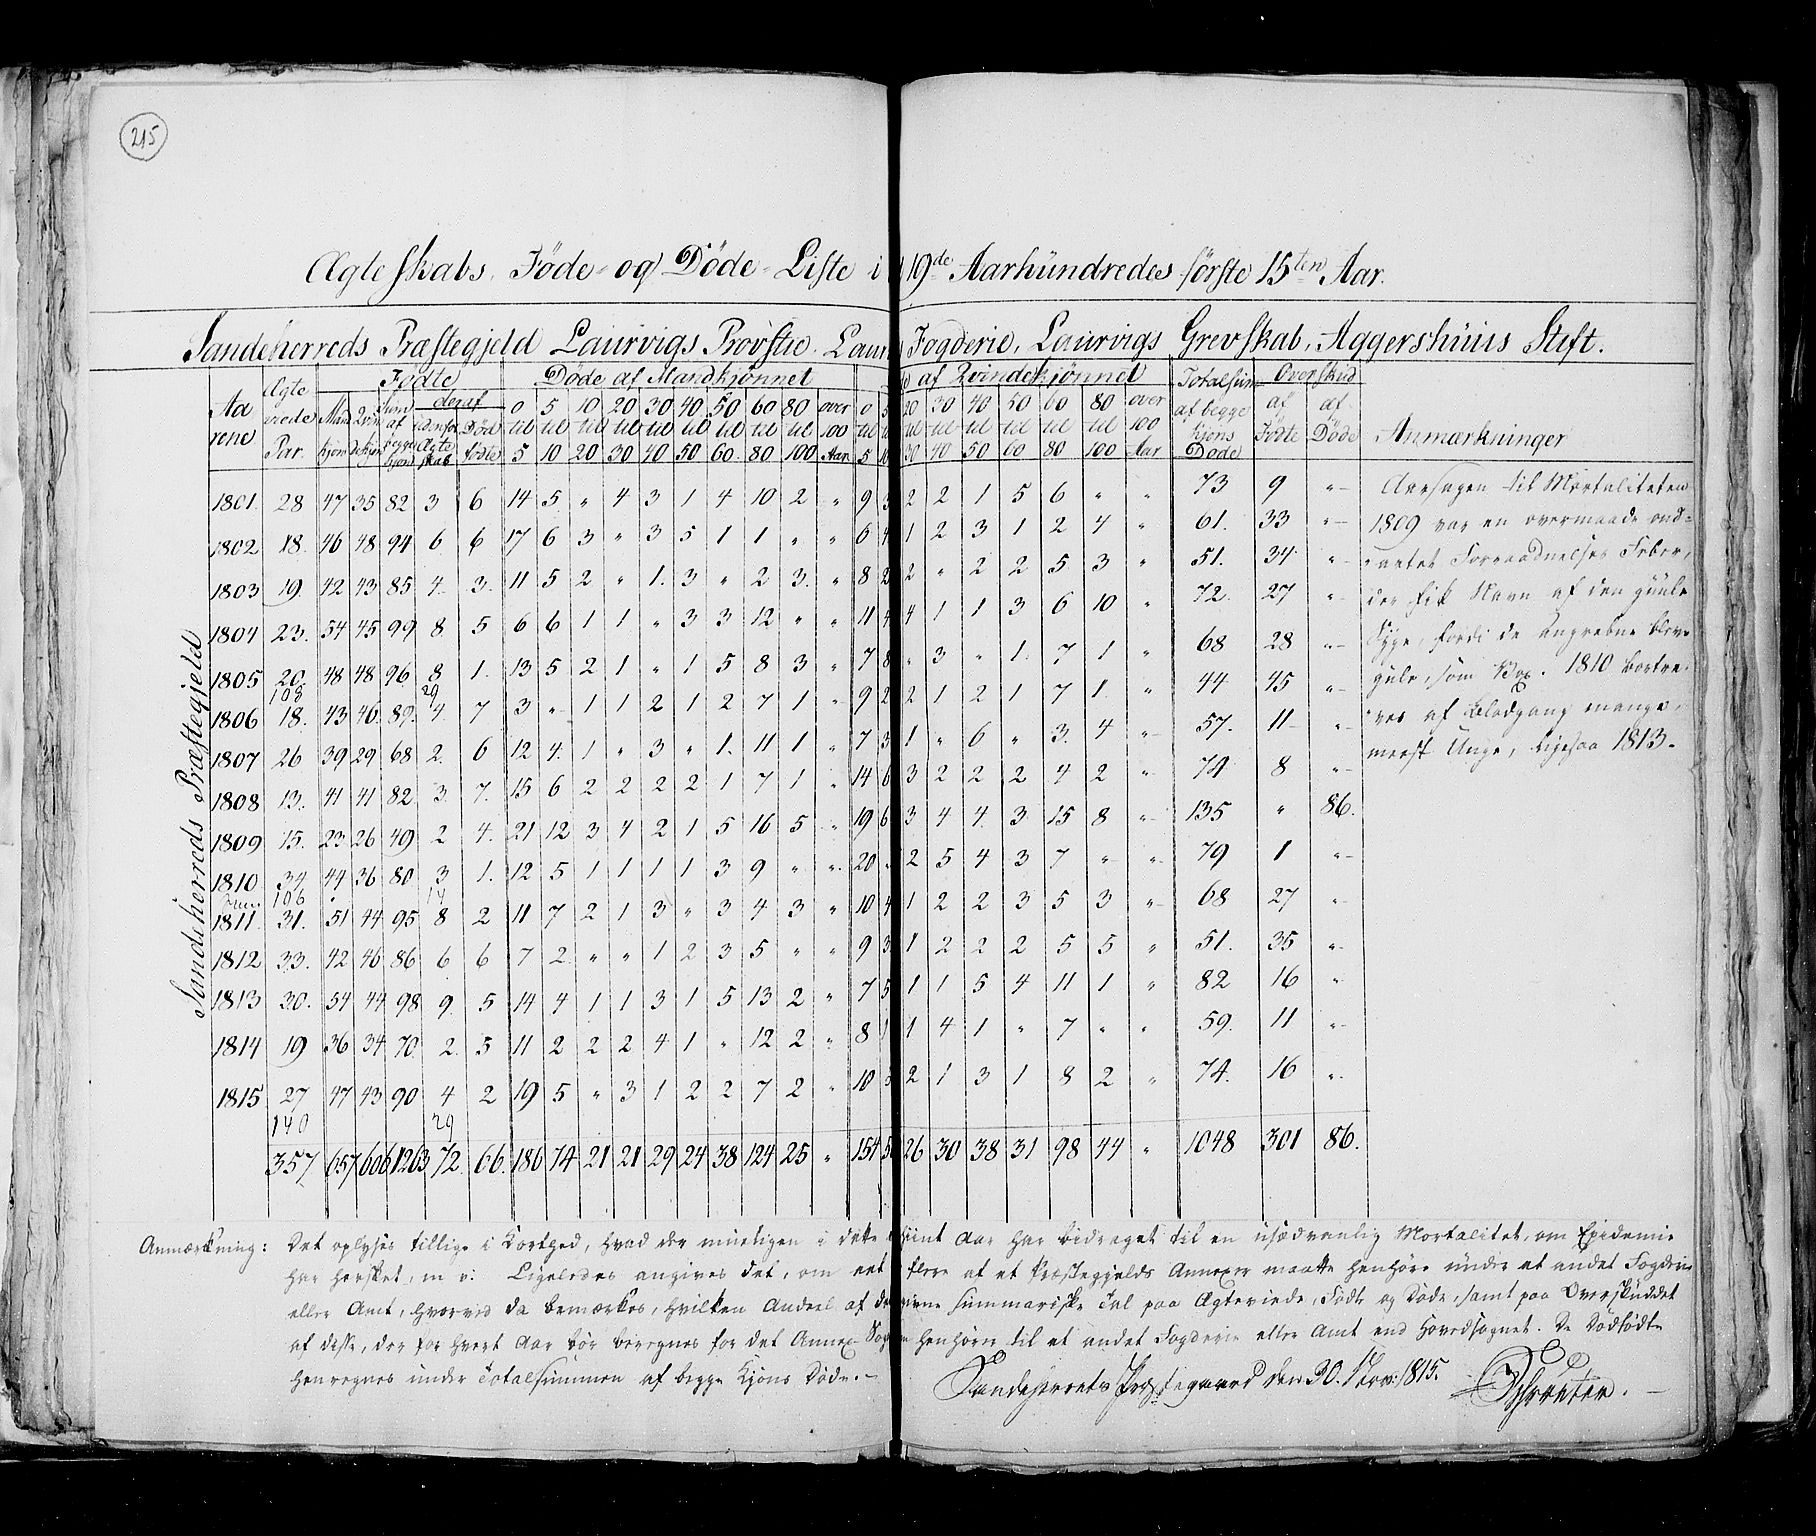 215
Ægteskabs, Føde- og Døde-Liste i 19de Aarhundredes første 15ten Aar.
Sandeherreds Præstegjeld Laurvigs Provstie. Laur Fogderie, Laurvigs Grevskab, Aggershuus Stift.
Sandeherreds Præstegjeld
Aarene | Ægteviede Par. | Fødte | Døde af Mandkjønnet | af Qvindekjønnet | Totalsum af begge Kjøns Døde | Overskud af Fødte | af Døde | Anmærkninger
Mandkjøn | Qvindekjøn | Sum af begge kjøn | deraf | udenfor Ægteskab | Dødfødte | 0 til 5 | 5 til 10 | 10 til 20 | 20 til 30 | 30 til 40 | 40 til 50 | 50 til 60. | 60 til 80 | 80 til 100 | over 100 Aar | 0 til 5 | 5 10 | 20 til 30 | 30 til 40 | 40 til 50 | 50 til 60 | 60 til 80 | 80 til 100 | over 100 Aar
1801. 28 47 35 82 3 6 14 5 " 4 3 1 4 10 2 " 9 3 2 2 1 5 6 " " 73 9 "
1802 18. 46 48 94 6 6 17 6 3 " 3 5 1 1 " " 6 4 1 2 3 1 2 4 " 61. 33 "
1803 19 42 43 85 4. 3. 11 5 2 " 1. 3 " 2 3. " 8 2 2 " 2 2 5 3 " 51. 34 "
1804 23. 54 45 99 8 5 6 6 1 1 " 3 3 12 " " 11 4 4 1 1 3 6 10 " 72. 27 "
1805 20. 48 48 96 8 1. 13 5 2 1 " 1 5 8 3 " 7 8 " 3 " 1. 7 1 " 68 28 "
108 29
1806 18. 43 46. 89. 4. 7 3 " 1 1 2 1 2 7 1 " 9 2 2 1 2 1 7 1. " 44 45 "
1807 26 39 29 68 2. 6 12 4. 1 " 3 " 1. 11 1 " 7 3 1 " 6 " 3. 4 " 57. 11 "
1808 13. 41 41 82 3. 7. 15 6 2 2 2 2 1 7 1 " 14 6 3 2 2 2 4 2 " 74 8 "
1809 15. 23 26 49 2 4. 21 12 3 4 2 1 5 16 5 " 19 6 3 4 4. 3 15 8 " 135 " 86.
1810 34 44 36 80 3 1. 12 5 1 1 1 1 3 9 " " 20 2 5 4 3 7 " " 79 1 "
106 14
1811. 31. 51 44 95 8 2 11 7 2 1 3 " 3 4 3 " 10 4 1 2 2 3 5 3 " 68 27 "
1812 33. 42 46 86 6 6 7 2 " " 1 2 3 5 " " 9 3 1 2 2 2 5 5 " 51. 35 "
1813 30. 54 44 98 9. 5 14 4 1 1 3 1 5 13 2 " 7 5 1 1 5 4 11 1 " 82 16 "
1814 19 36 34 70 2. 5 11 2 2 2 4 1 " 12 2 " 8 1 1 4 1 " 7 " " 59. 11 "
1815 27 47 43 90 4 2 19 5 " 3 1 2 2 7 2 " 10 3 2 1 3 1 8 2 " 74. 16 "
140 29
357 657 606 1263 72. 66. 186 74 21 21 29 24 38 124 25 " 154 5 26 30 38 31 98 44 " 1048 301 86.
Aarsagen til Mortaliteten
1809 var en overmaade ond-
artet Forraadnelses Feber,
der fik Navn af den guule
Syge, fordi de angrebne bleve
gule, som Vox. 1810 bortre-
ves af Blodgang mange,
meest Unge, ligesaa 1813.
Anmærkning: Det oplyses tillige i Korthed, hvad der mueligen i dette eet Aar har bidraget til en usædvanlig Mortalitet, om Epidemie
har hersket, m v: Ligeledes angives det, om eet flere af et Præstegjelds Annexer maatte henhøre under et andet Fogderie
eller Amt, hvorved da bemærkes, hvilken Andeel af de givne summariske Tal paa Ægteviede, Fødte og Døde, samt paa Overskuddet
af disse, der for hvert Aar bør beregnes for det Annex-Sogn henhører til et andet Fogderie eller Amt end Hovedsognet. De Dødfødte
henregnes under Totalsummen af begge Kjøns Døde.
Sandeherrets Præstegaard den 30. Nov: 1815.
Schrøeter.